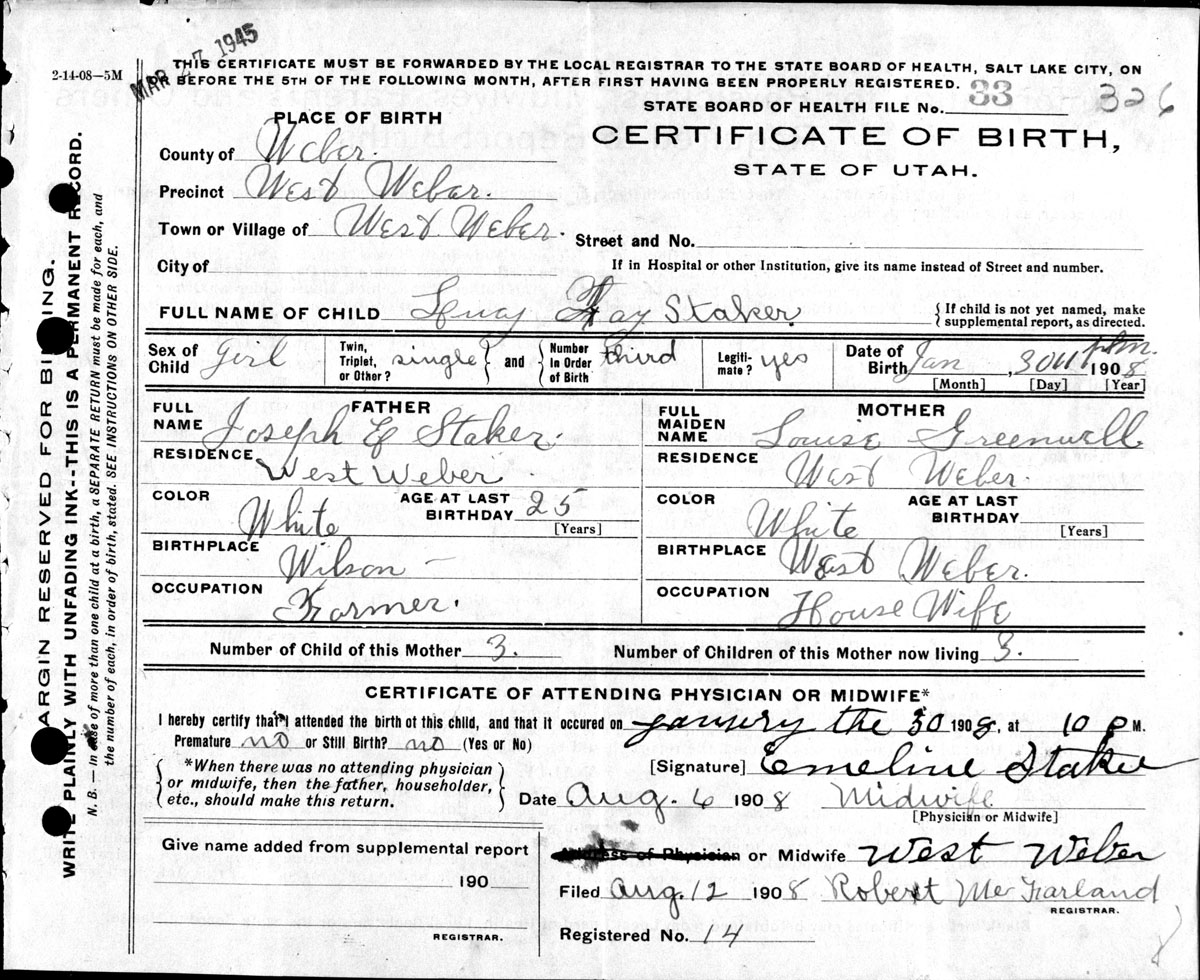 MAR 27 1945
2-14-08—5M
THIS CERTIFICATE MUST BE FORWARDED BY THE LOCAL REGISTRAR TO THE STATE BOARD OF HEALTH, SALT LAKE CITY, ON
OR BEFORE THE 5TH OF THE FOLLOWING MONTH, AFTER FIRST HAVING BEEN PROPERLY REGISTERED.
STATE BOARD OF HEALTH FILE No. 33 326
CERTIFICATE OF BIRTH,
STATE OF UTAH.
PLACE OF BIRTH
County of Weber.
Precinct West Weber.
Town or Village of West Weber.
Street and No.
City of
If in Hospital or other Institution, give its name instead of Street and number.
FULL NAME OF CHILD Fay Staker
{If child is not yet named, make
supplemental report, as directed.
Sex of Child Girl
Twin, Triplet, or Other? single and Number in Order of Birth third
Legitimate? yes
Date of Birth Jan, 30 1908
[Month] [Day] [Year]
FATHER
FULL NAME Joseph E Staker.
RESIDENCE West Weber
COLOR White
AGE AT LAST BIRTHDAY 25
[Years]
BIRTHPLACE Wilson —
OCCUPATION Farmer.
MOTHER
FULL MAIDEN NAME Louise Greenwell
RESIDENCE West Weber.
COLOR White
AGE AT LAST BIRTHDAY
[Years]
BIRTHPLACE West Weber.
OCCUPATION House Wife
Number of Child of this Mother 3. Number of Children of this Mother now living 3.
CERTIFICATE OF ATTENDING PHYSICIAN OR MIDWIFE*
I hereby certify that I attended the birth of this child, and that it occured on janury the 30 1908, at 10 P M.
Premature no or Still Birth? no (Yes or No)
*When there was no attending physician
or midwife, then the father, householder,
etc., should make this return.
[Signature] Emeline Staker
Date Aug. 6 1908 Midwife
[Physician or Midwife]
Address of Physician or Midwife West Weber
Filed Aug. 12 1908 Robert McFarland
REGISTRAR.
Registered No. 14
Give name added from supplemental report
190
REGISTRAR.
MARGIN RESERVED FOR BINDING.
WRITE PLAINLY WITH UNFADING INK--THIS IS A PERMANENT RECORD.
N. B.— in case of more than one child at a birth, a SEPARATE RETURN must be made for each, and
the number of each, in order of birth, stated. SEE INSTRUCTIONS ON OTHER SIDE.